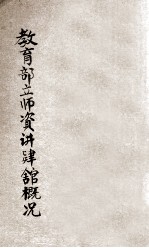 教育部立师資讲肄舘概况